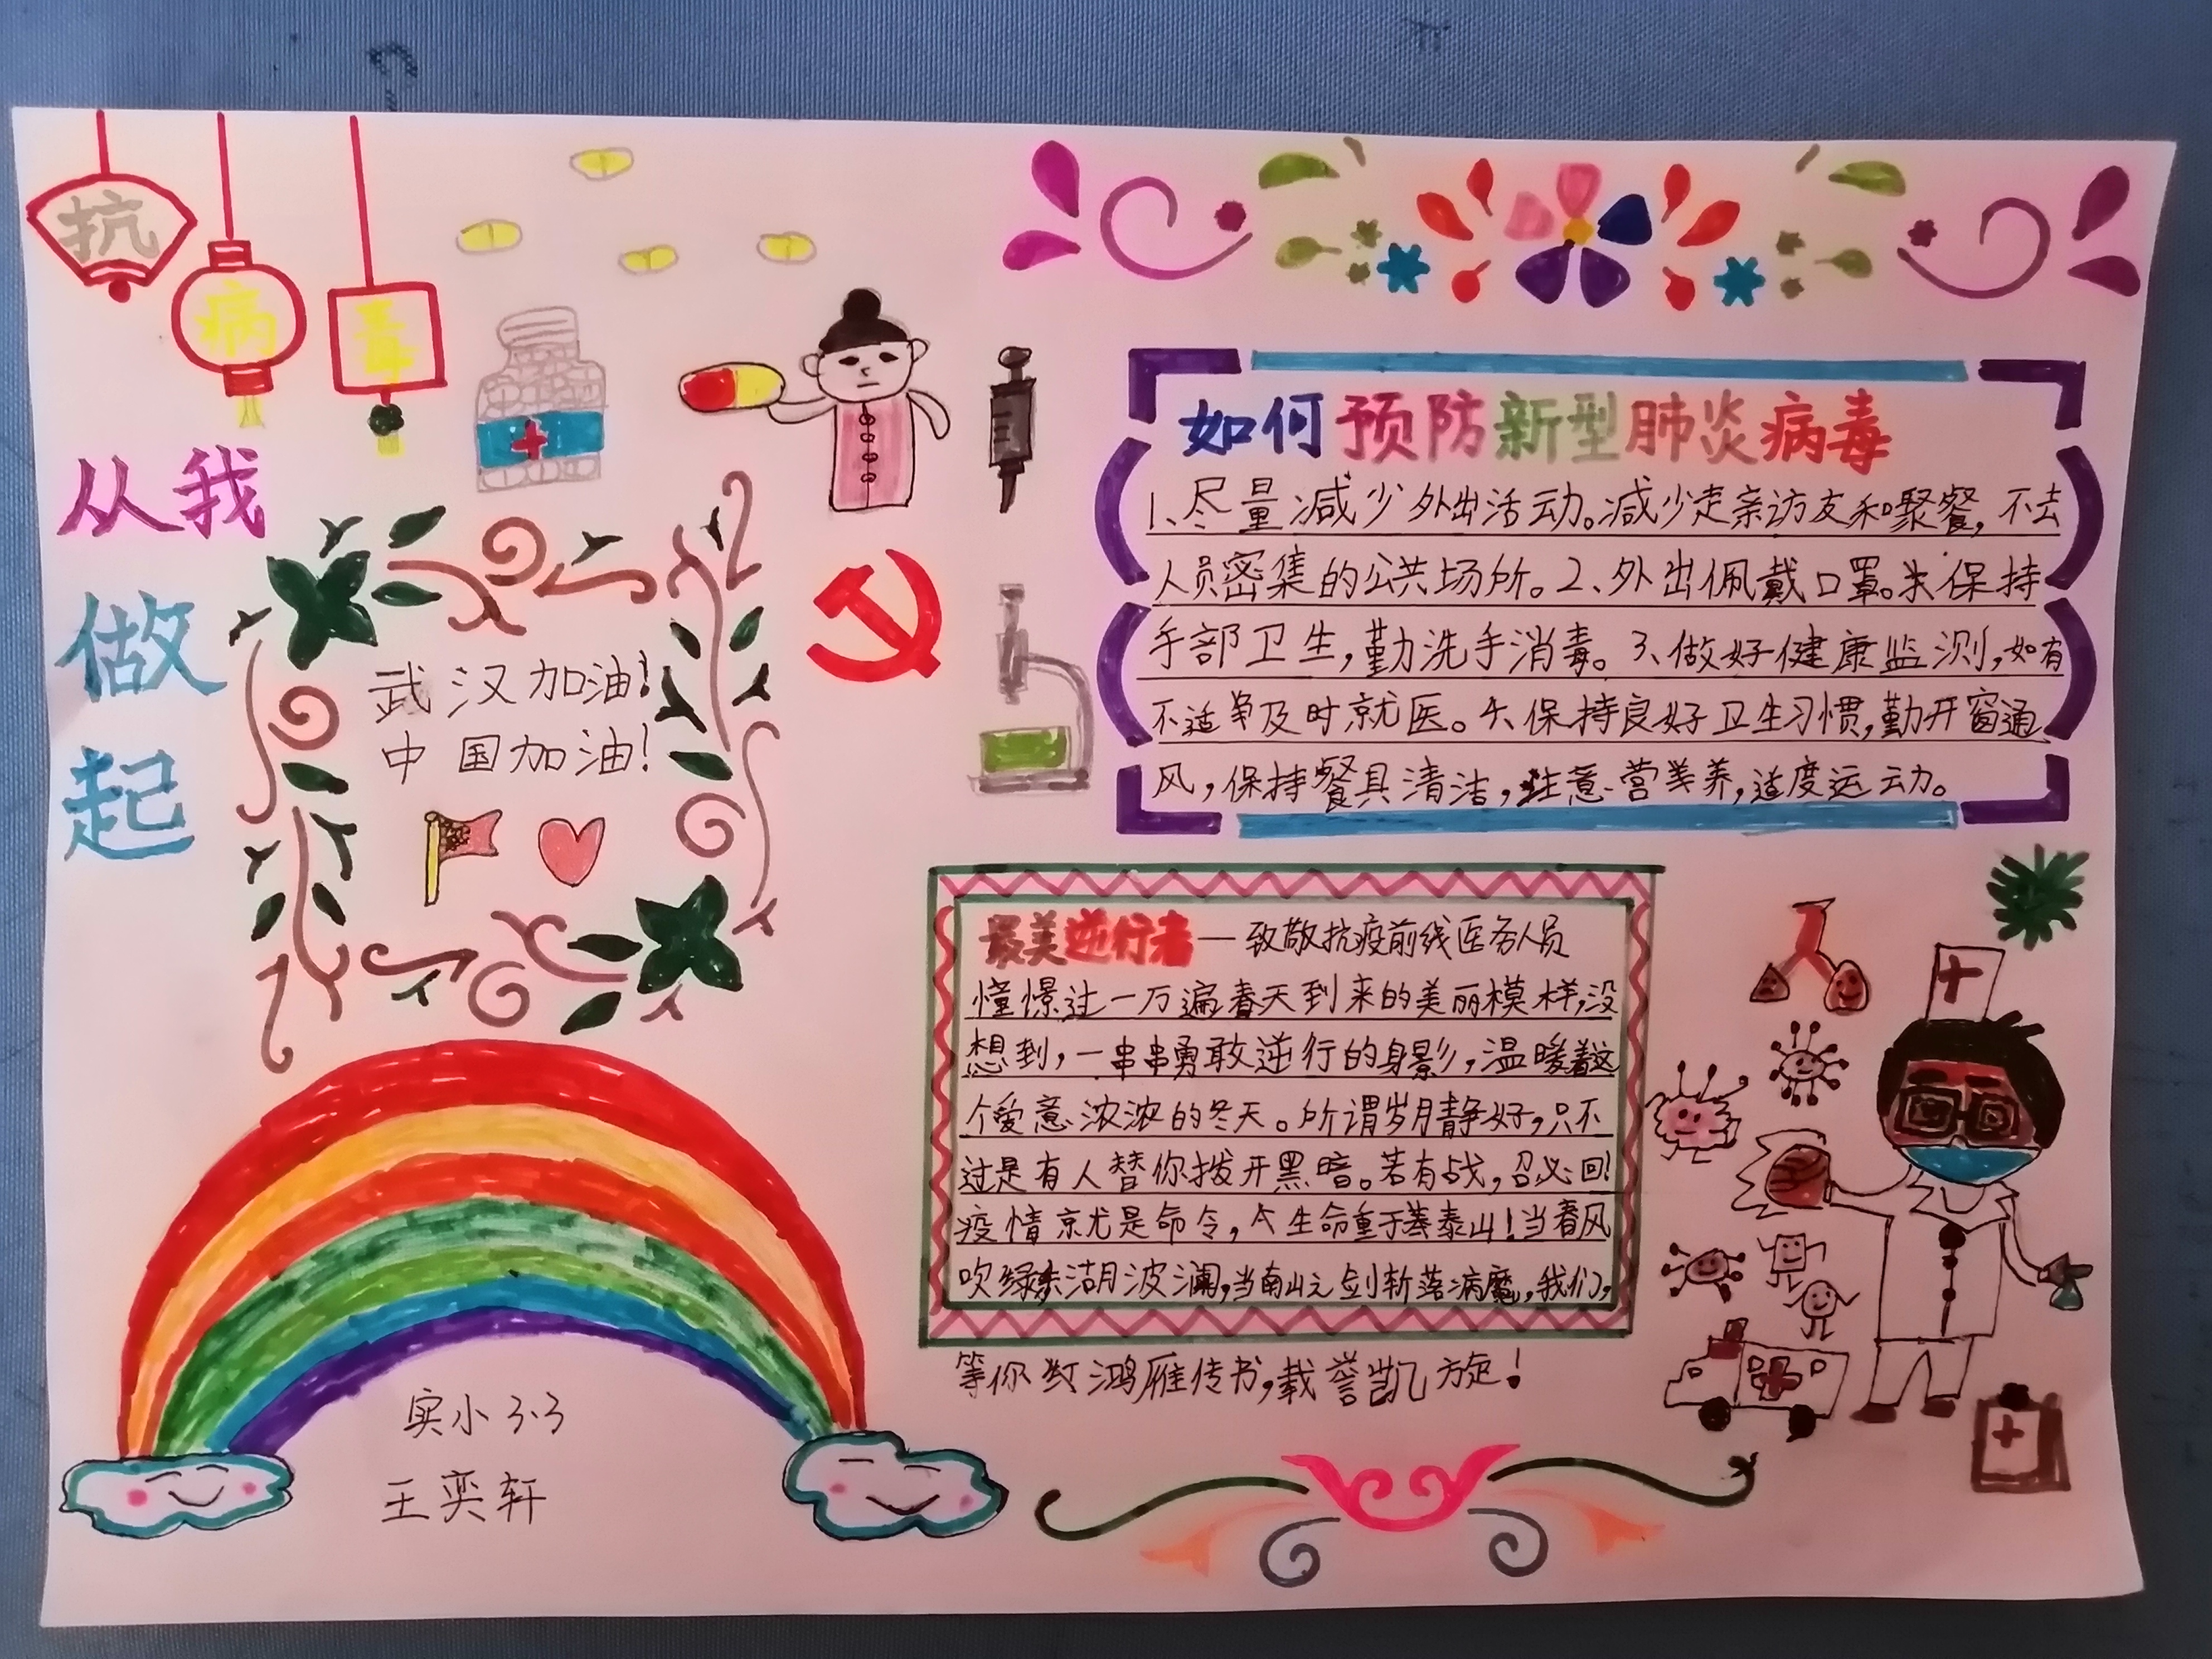 抗
病
毒
从我
做
起
武汉加油!
中国加油!
如何预防新型肺炎病毒
1、尽量减少外出活动。减少走亲访友和聚餐,不去
人员密集的公共场所。2、外出佩戴口罩。保持
手部卫生,勤洗手消毒。3、做好健康监测,如有
不适等及时就医。4、保持良好卫生习惯,勤开窗通
风,保持餐具清洁,注意营养,适度运动。
最美逆行者—致敬抗疫前线医务人员
憧憬过一万遍春天到来的美丽模样,没
想到,一串串勇敢逆行的身影,温暖着这
个爱意浓浓的冬天。所谓岁月静好,只不
过是有人替你拨开黑暗。若有战,召必回!
疫情就是命令,生命重于泰山!当春风
吹绿东湖波澜,当南山之剑斩落病魔,我们,
等你鸿雁传书,载誉凯旋!
实小3.3
王奕轩